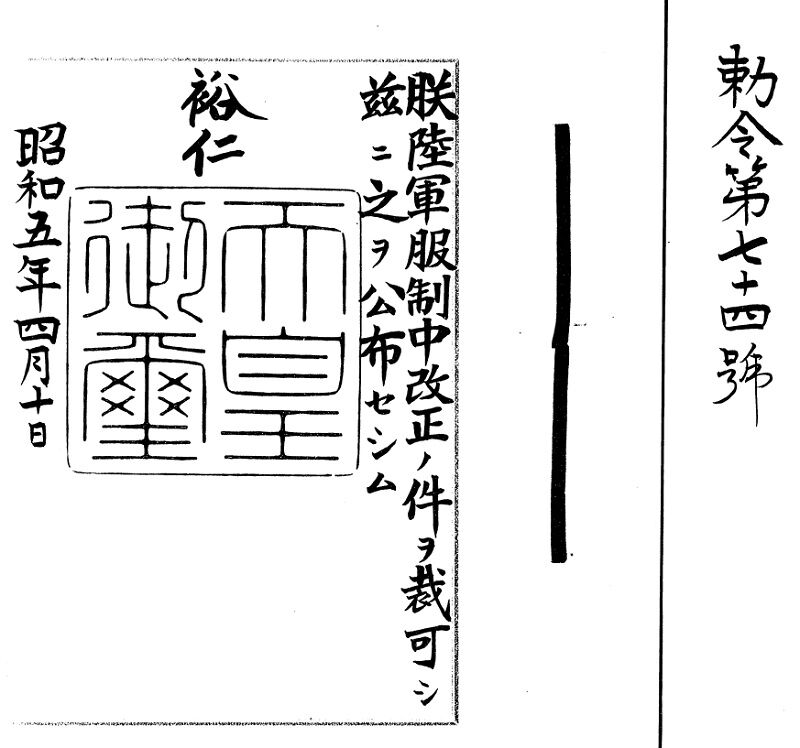 勅令第七十四號
朕陸軍服制中改正ノ件ヲ裁可シ
茲ニ之ヲ公布セシム
裕仁
天皇
御璽
昭和五年四月十日